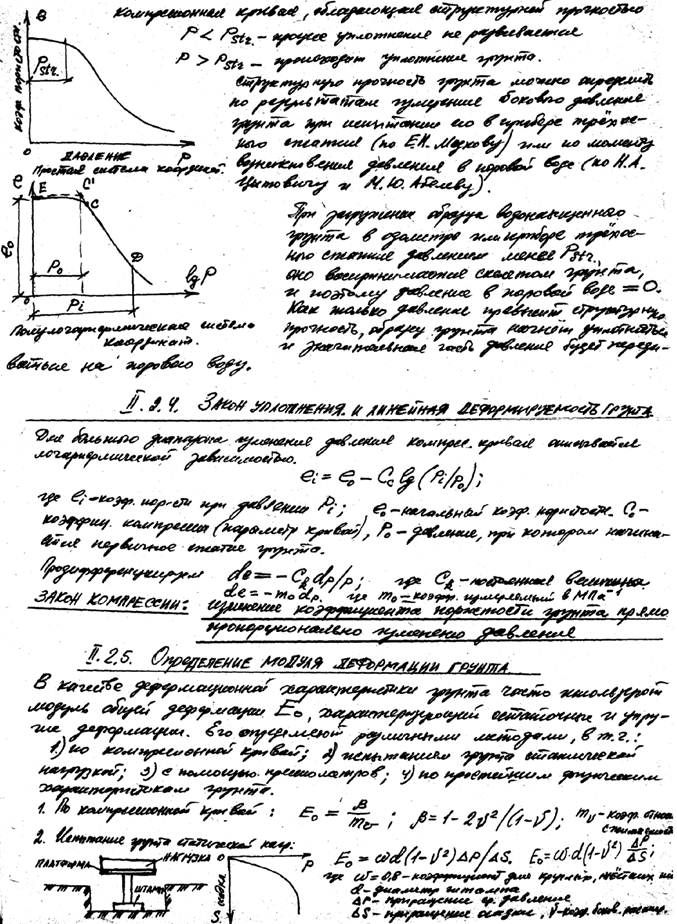 Компрессионная кривая, обладающая структурной прочностью
P < Pstr. - процесс уплотнения не развивается
P > Pstr - происходит уплотнение грунта.
Структурную прочность грунта можно определить
по результатам измерения бокового давления
грунта при испытании его в приборе трёхос-
ного сжатия (по Е.И. Медкову) или по моменту
возникновения давления в поровой воде (по Н.А.
Цытовичу и М.Ю. Абелеву).
B
коэф. пористости
Pstr.
0
P
ДАВЛЕНИЕ
Простая система координат.
При загружении образца водонасыщенного
грунта в одометре или приборе трёхос-
ного сжатия давлением менее Pstr.,
оно воспринимается скелетом грунта,
и поэтому давление в поровой воде = 0.
Как только давление превысит структурную
прочность, образец грунта начнёт уплотняться
и значительная часть давления будет переда-
ваться на поровую воду.
e
E
C'
C
e₀
P₀
D
lg P
0
Pi
Полулогарифмическая система
координат.
II.2.4. ЗАКОН УПЛОТНЕНИЯ И ЛИНЕЙНАЯ ДЕФОРМИРУЕМОСТЬ ГРУНТА
Для большого диапазона изменения давления компрес. кривая описывается
логарифмической зависимостью.
ei = e₀ - C₀ lg (Pi/P₀);
где ei - коэф. пор-сти при давлении Pi; e₀ - начальный коэф. пористости. C₀ -
коэффиц. компрессии (параметр кривой), P₀ - давление, при котором начина-
ется первичное сжатие грунта.
Продифференцируем de = - Cк dp/p; где Cк - постоянная величина
de = - m₀ dp. где m₀ - коэф. измеряемый в МПа⁻¹
ЗАКОН КОМПРЕССИИ: изменение коэффициента пористости грунта прямо
пропорционально изменению давления
II.2.5. ОПРЕДЕЛЕНИЕ МОДУЛЯ ДЕФОРМАЦИИ ГРУНТА
В качестве деформационной характеристики грунта часто используют
модуль общей деформации E₀, характеризующий остаточные и упру-
гие деформации. Его определяют различными методами, в т.ч.:
1) по компресионной кривой; 2) испытанием грунта статической
нагрузкой; 3) с помощью прессиометров; 4) по простейшим физическим
характеристикам грунта.
1. По компрессионной кривой: E₀ = β/mv; β = 1 - 2ν²/(1-ν); mv - коэф. относ.
сжимаемости
2. Испытание грунта статической нагр:
ПЛАТФОРМА
НАГРУЗКА
ШТАМП
0
P
S, осадка
E₀ = ωd(1-ν²)ΔP/ΔS. E₀ = ω·d(1-ν²) ΔP/ΔS;
где ω = 0,8 - коэффициент для круглых, жёстких
d - диаметр штампа
ΔP - приращение ср. давления
ΔS - приращение осадки ν - коэф. боков. расшир.